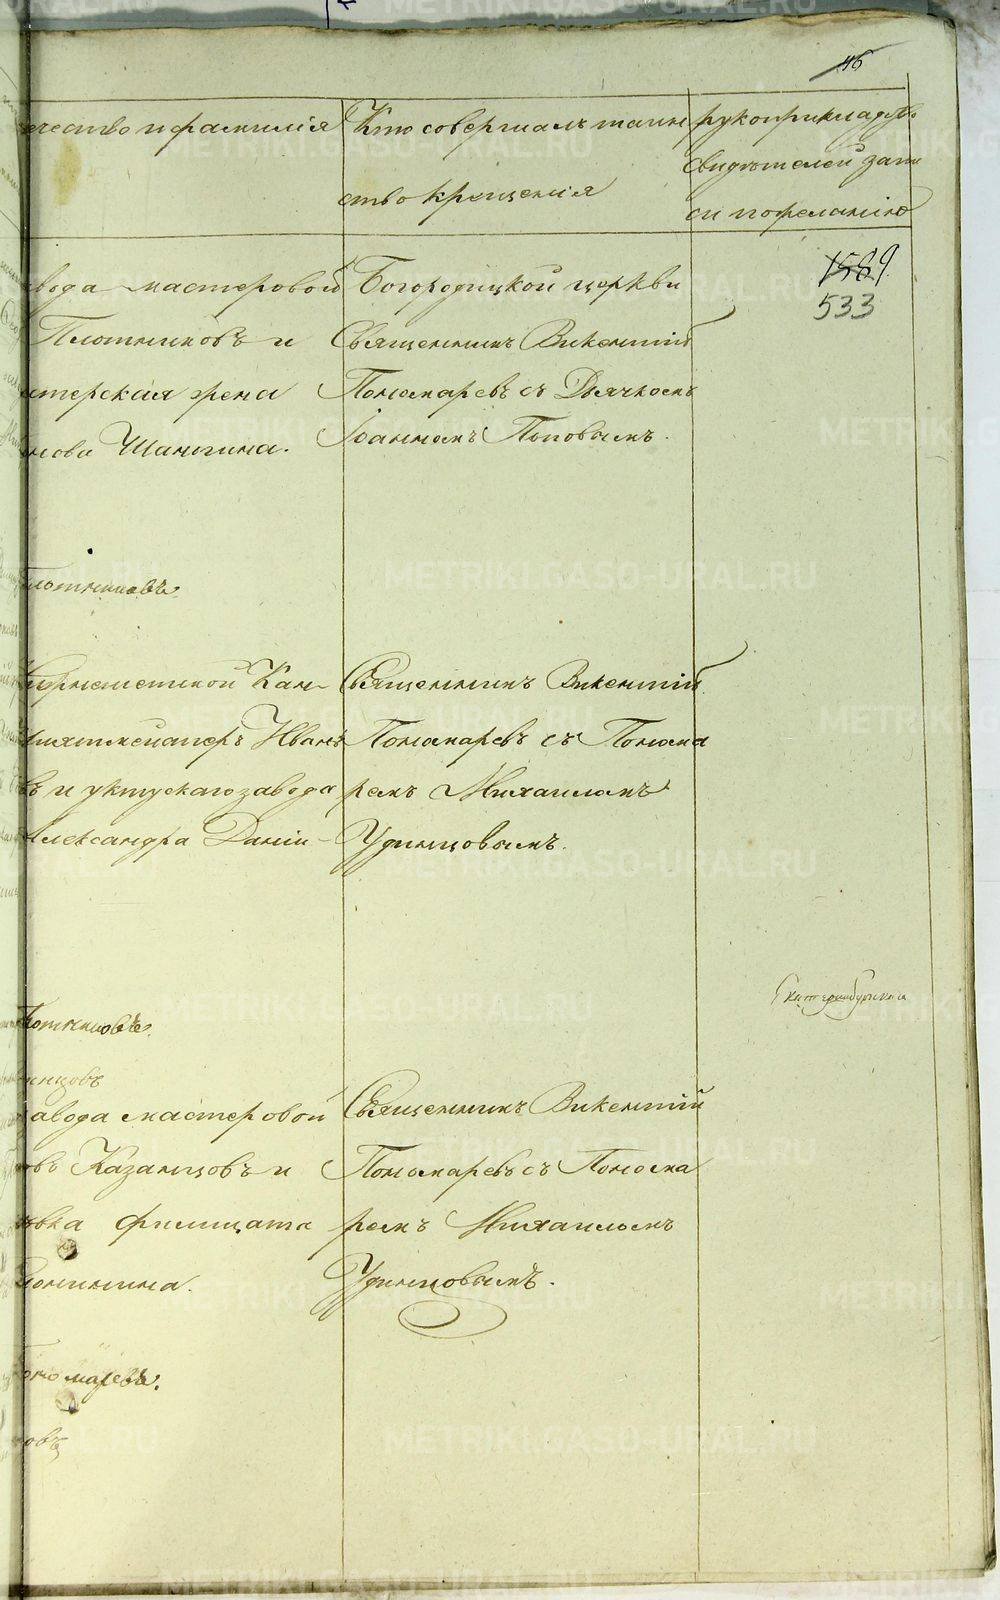 46
чество и фамилія
Кто совершалъ таин
ство крещенія
рукоприкладство
свидѣтелей запи
си по желанію
1589
533
вода мастеровой
Плотниковъ и
стерская жена
нова Шангина.
Богородицкой церкви
Священникъ Викентій
Пономаревъ съ Дьячкомъ
Іоанномъ Поповымъ.
лотниковъ.
Кан-
Иванъ
въ и уктускаго завода
Александра Даніи-
Священникъ Викентій
Пономаревъ съ Понома
ремъ Михаиломъ
Удинцовымъ.
Екатеринбургскій
лотниковъ.
инцовъ
завода мастеровой
овъ Казанцовъ и
овка филицата
Священникъ Викентій
Пономаревъ съ Понома
ремъ Михаиломъ
Удинцовымъ.
ономаревъ.
овъ
METRIKI.GASO-URAL.RU